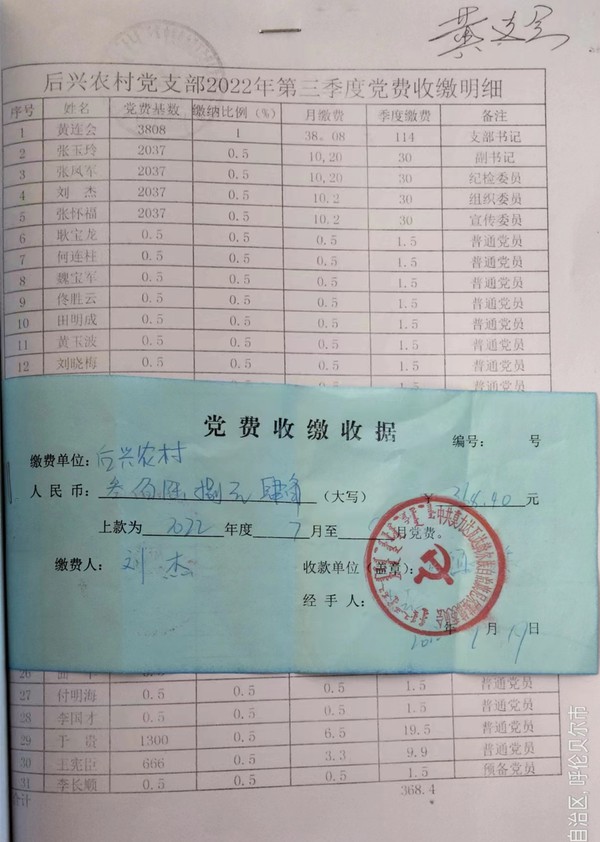 后兴农村党支部2022年第三季度党费收缴明细
序号 姓名 党费基数 缴纳比例（%） 月缴费 季度缴费 备注
1 黄连会 3808 1 38.08 114 支部书记
2 张玉玲 2037 0.5 10.20 30 副书记
3 张凤军 2037 0.5 10.20 30 纪检委员
4 刘 杰 2037 0.5 10.2 30 组织委员
5 张怀福 2037 0.5 10.2 30 宣传委员
6 耿宝龙 0.5 0.5 0.5 1.5 普通党员
7 何连柱 0.5 0.5 0.5 1.5 普通党员
8 魏宝军 0.5 0.5 0.5 1.5 普通党员
9 佟胜云 0.5 0.5 0.5 1.5 普通党员
10 田明成 0.5 0.5 0.5 1.5 普通党员
11 黄玉波 0.5 0.5 0.5 1.5 普通党员
12 刘晓梅 0.5 0.5 0.5 1.5 普通党员
普通党员
党费收缴收据
编号： 号
缴费单位：后兴农村
人民币：叁佰陆捌元肆角（大写） ¥368.40元
上款为2022年度7月至 月党费。
缴费人：刘杰 收款单位（盖章）：
经手人：
年 月 日
26 0.5 0.5 1.5 普通党员
27 付明海 0.5 0.5 0.5 1.5 普通党员
28 李国才 0.5 0.5 0.5 1.5 普通党员
29 于 贵 1300 0.5 6.5 19.5 普通党员
30 王宪臣 666 0.5 3.3 9.9 普通党员
31 李长顺 0.5 0.5 0.5 1.5 预备党员
合计 368.4
自治区.呼伦贝尔市